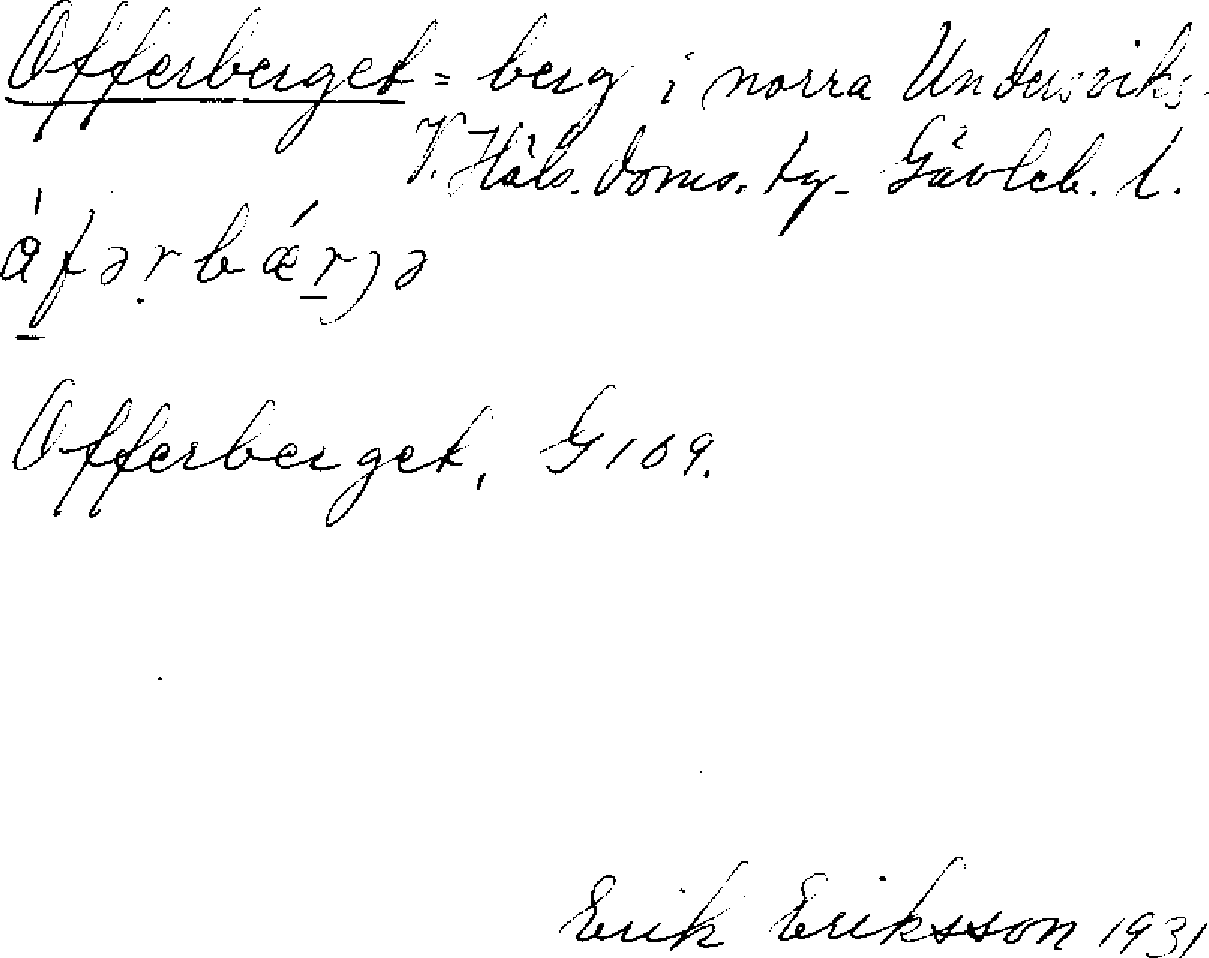 Offerberget = berg i norra Undersviks.
V. Häls. doms. tg. Gävleb. l.
ǻ̱fərbǽṟjə
Offerberget, G 109.
Erik Eriksson 1931